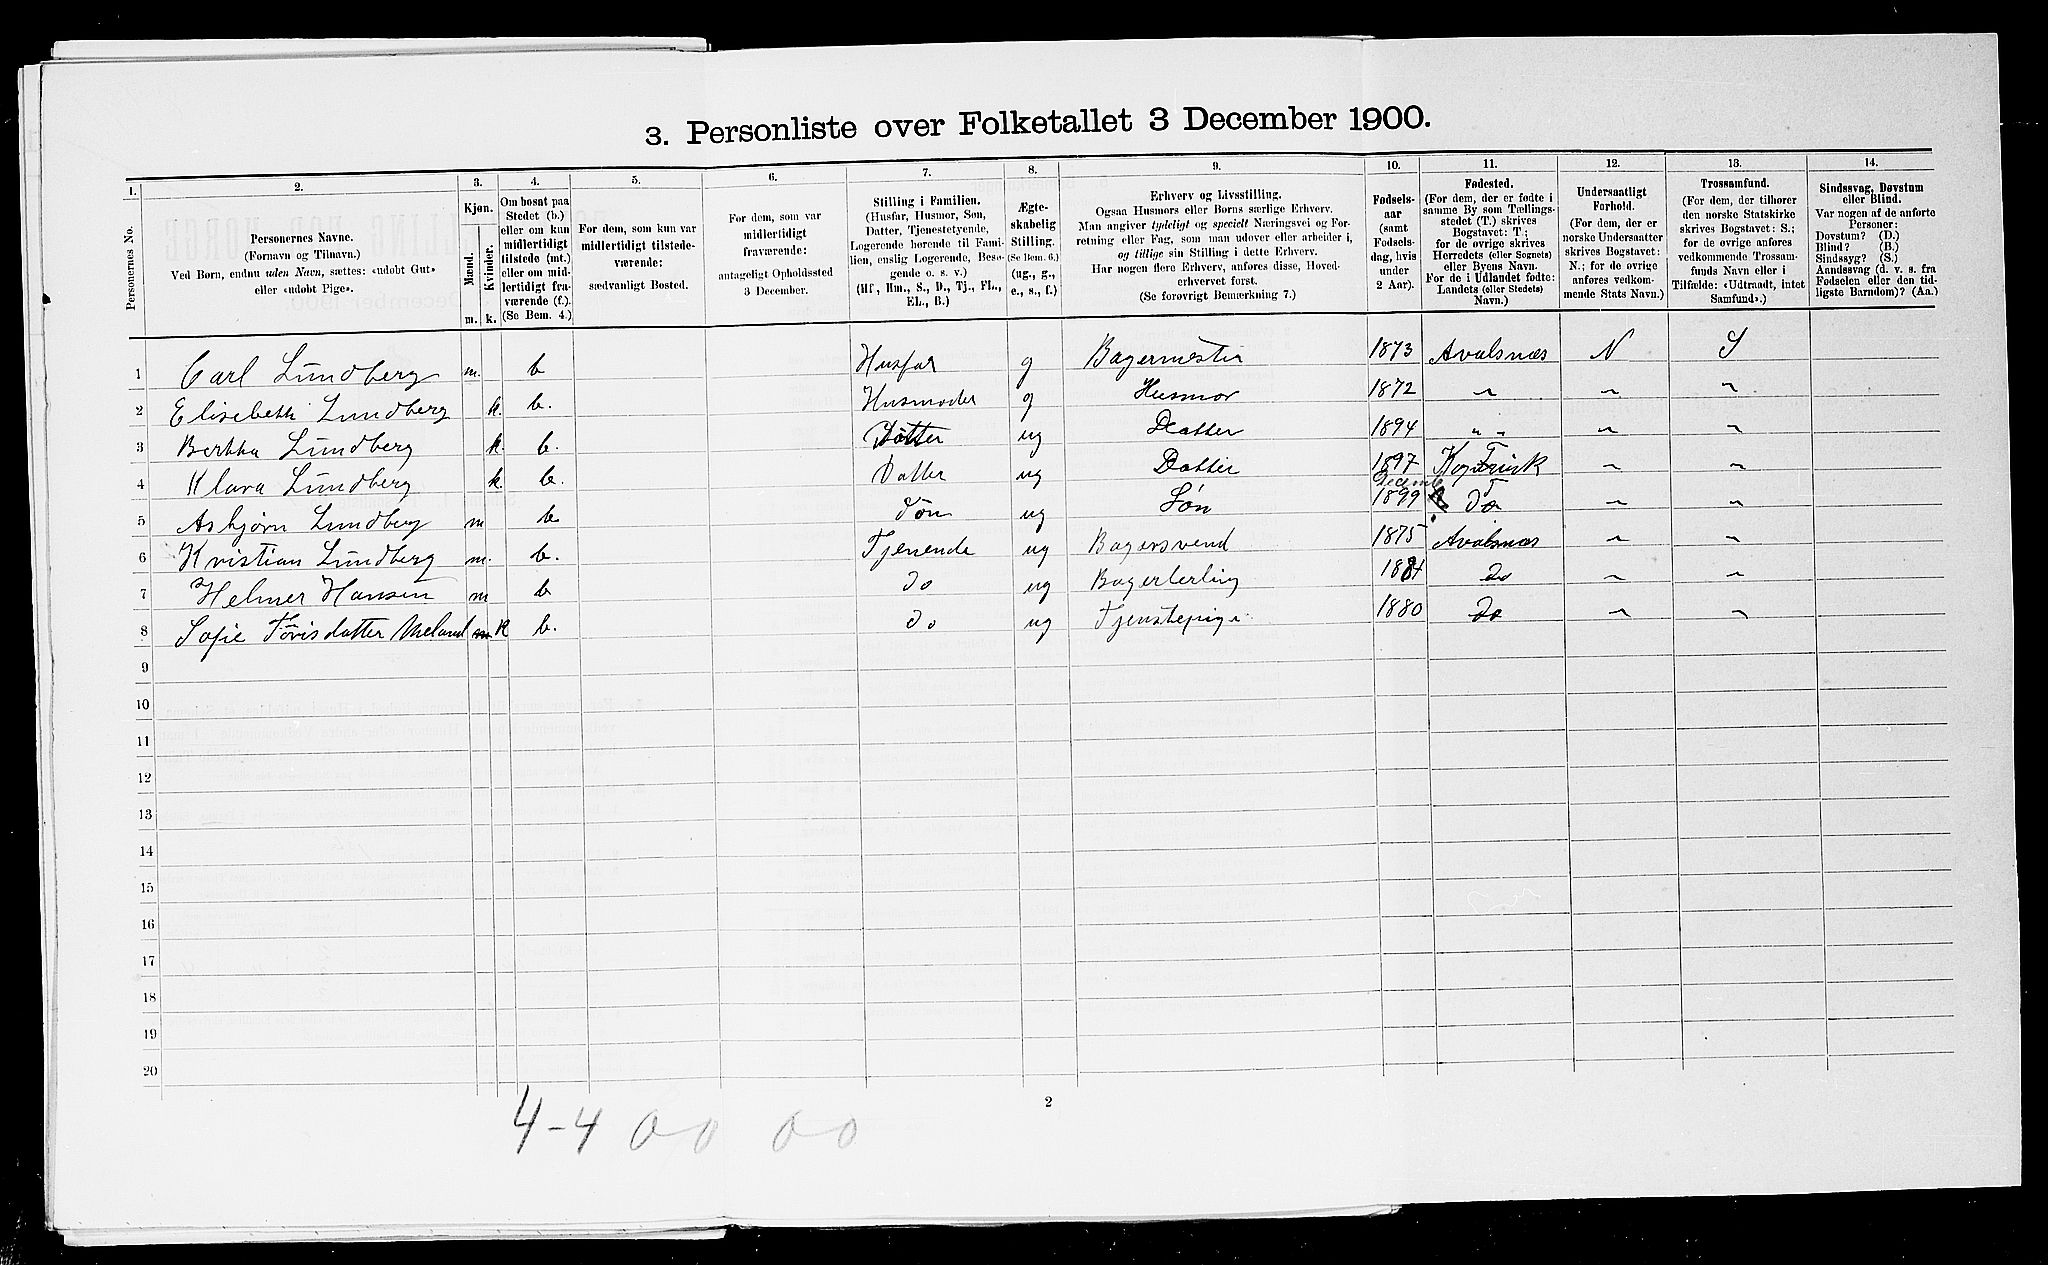 3. Personliste over Folketallet 3 December 1900.
1. 2. 3. 4. 5. 6. 7. 8. 9. 10. 11. 12. 13. 14.
Personernes No.
Personernes Navne.
(Fornavn og Tilnavn.)
Ved Børn, endnu uden Navn, sættes: «udøbt Gut»
eller «udøbt Pige».
Kjøn.
Mænd. Kvinder.
m. k.
Om bosat paa
Stedet (b.)
eller om kun
midlertidigt
tilstede (mt.)
eller om mid-
lertidigt fra-
værende (f.).
(Se Bem. 4.)
For dem, som kun var
midlertidigt tilstede-
værende:
sædvanligt Bosted.
For dem, som var
midlertidigt
fraværende:
antageligt Opholdssted
3 December.
Stilling i Familien.
(Husfar, Husmor, Søn,
Datter, Tjenestetyende,
Logerende hørende til Fami-
lien, enslig Logerende, Besø-
gende o. s. v.)
(Hf, Hm., S., D., Tj., FL.,
EL., B.)
Ægte-
skabelig
Stilling.
(Se Bem. 6.)
(ug., g.,
e., s., f.)
Erhverv og Livsstilling.
Ogsaa Husmors eller Børns særlige Erhverv.
Man angiver tydeligt og specielt Næringsvei og For-
retning eller Fag, som man udover eller arbeider i,
og tillige sin Stilling i dette Erhverv.
Har nogen flere Erhverv, anføres disse, Hoved-
erhvervet først.
(Se forøvrigt Bemærkning 7.)
Fødsels-
aar
(samt
Fødsels-
dag, hvis
under
2 Aar).
Fødested.
(For dem, der er fødte i
samme By som Tællings-
stedet (T.) skrives
Bogstavet: T.;
for de øvrige skrives
Herredets (eller Sognets)
eller Byens Navn.
For de i Udlandet fødte:
Landets (eller Stedets)
Navn.)
Undersaatligt
Forhold.
(For dem, der er
norske Undersaatter
skrives Bogstavet:
N.; for de øvrige
anføres vedkom-
mende Stats Navn.)
Trossamfund.
(For dem, der tilhører
den norske Statskirke
skrives Bogstavet: S.;
for de øvrige anføres
vedkommende Trossam-
funds Navn eller i
Tilfælde: «Udtraadt, intet
Samfund».)
Sindssvag, Døvstum
eller Blind.
Var nogen af de anførte
Personer:
Døvstum? (D.)
Blind? (B.)
Sindssyg? (S.)
Aandssvag (d. v. s. fra
Fødselen eller den tid-
ligste Barndom)? (Aa.)
1 Carl Lundberg m. b Husfar g Bagermester 1873 Avalsnæs N S
2 Elisebeth Lundberg k. b. Husmoder g Husmor 1872 " " "
3 Bertha Lundberg k. b. Datter ug Datter 1894 " " " "
4 Klara Lundberg k. b. Datter ug Datter 1897 T " "
5 Asbjørn Lundberg m b Søn ug Søn 1899 T do " "
6 Kristian Lundberg m. b. Tjenende ug Bagersvend 1875 Avalsnæs " "
7 Helmer Hansen m b do ug Bagerlerling 1884 do " "
8 Sofie Tørisdatter Meland m k b. do ug Tjenstepige 1880 do " "
9
10
11
12
13
14
15
16
17
18
19
20
2
4-4 0 0 0 0